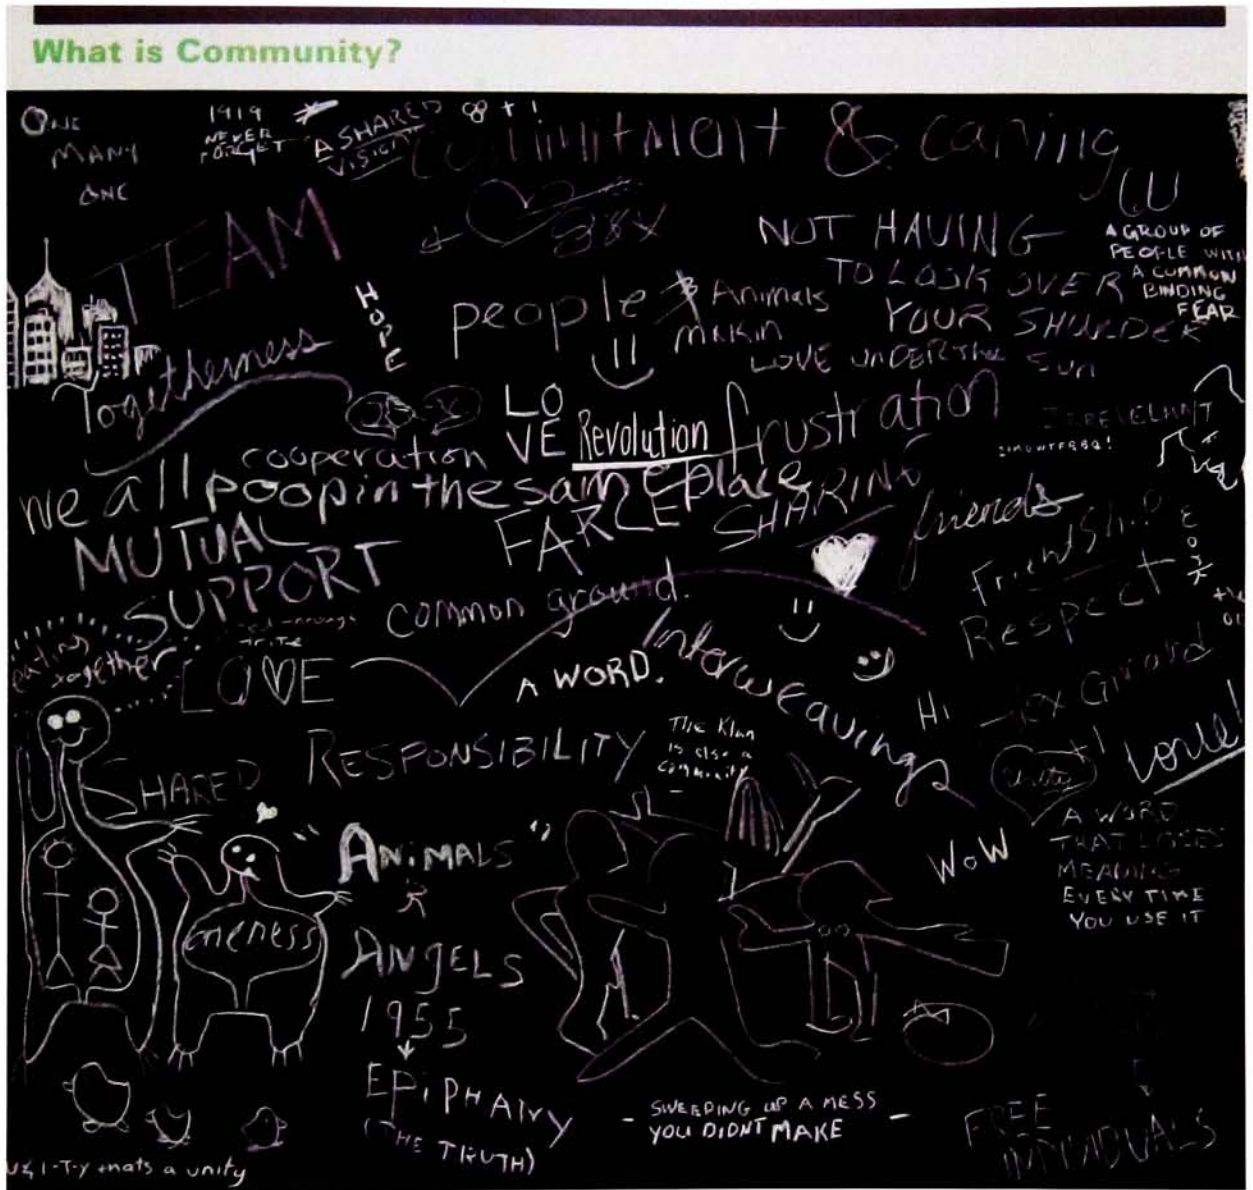 What is Community?
ONE
MANY
ONE
1919
NEVER
FORGET
A SHARED
VISION
Commitment & caring
TEAM
NOT HAVING
TO LOOK OVER
YOUR SHOULDER
A GROUP OF
PEOPLE WITH
A COMMON
BINDING
FEAR
HOPE
people & Animals
makin
LOVE UNDER THE SUN
Togetherness
LO
VE
Revolution
frustration
IRRELEVANT
cooperation
we all poop in the same place
FARCE
SHARING
friends
MUTUAL
SUPPORT
Friendship
Respect
common ground.
eating
together
LOVE
A WORD.
Interweavings
Hi
SHARED RESPONSIBILITY
The Klan
is also a
community
unity
A WORD
THAT LOSES
MEANING
EVERY TIME
YOU USE IT
"ANIMALS"
R
ANGELS
1955
EPIPHANY
(THE TRUTH)
WOW
oneness
- SWEEPING UP A MESS -
YOU DIDNT MAKE
FREE
INDIVIDUALS
I-T-y thats a unity